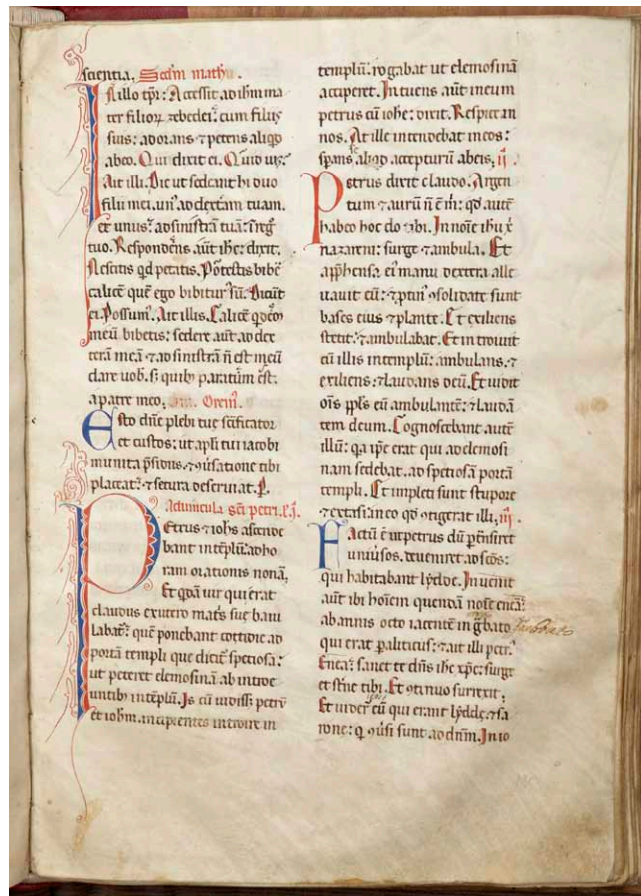 scientia. Scdm mathm.
In illo tpr: Accessit ad ihm ma
ter filior zebedei: cum filiis
suis: adorans ⁊ petens aliqd
ab eo. Qui dixit ei. Quid vis?
Ait illi. Dic ut sedeant hi duo
filii mei. un' ad dexteram tuam.
et unus ad sinistrã tuã: ĩ reg
tuo. Respondens aũt ihc: dixit.
Nescitis qd petatis. Potestis bibe
calicẽ quẽ ego bibitur' sũ. Dicũt
ei. Possum'. Ait illis. Calicẽ qdem
meũ bibetis: sedere aũt ad dex
terã meã ⁊ ad sinistrã ñ est meũ
dare uob. s; quib; paratum est.
a patre meo. Orem'.
Esto dñe plebi tue scificator
et custos: ut apli tui iacobi
munita psidiis. ⁊ ꝯuersatione tibi
placeat: ⁊ secura deseruiat. P.
Ad uincula sci petri. l'. j.
Petrus ⁊ iohs ascende
bant in tẽplũ: ad ho
ram orationis nonã.
Et qdã uir qui erat
claudus ex utero mat's sue baiu
labat': quẽ ponebant cottidie ad
portã templi que dicit' speciosa:
ut peteret elemosinã ab introe
untib; in tẽplũ. Is cũ uidiss; petrũ
et iohm. incipientes introire in
templũ: rogabat ut elemosinã
acciperet. Intuens aũt in eum
petrus cũ iohe: dixit. Respice in
nos. At ille intendebat in eos:
spans se aliqd accepturũ ab eis. ii.
Petrus dixit claudo. Argen
tum ⁊ aurũ ñ ẽ m: qd autẽ
habeo hoc do tibi. In noie ihu x
nazareni: surge ⁊ ambula. Et
apphensa ei' manu dextera alle
uauit eũ: ⁊ ptin' ꝯsolidate sunt
bases eius ⁊ plante. Et exiliens
stetit: ⁊ ambulabat. Et introiuit
cũ illis in templũ: ambulans. ⁊
exiliens: ⁊ laudans deũ. Et uidit
oĩs ppls eũ ambulantẽ: ⁊ laudã
tem deum. Cognoscebant autẽ
illũ: qa ipe erat qui ad elemosi
nam sedebat. ad speciosã portã
templi. Et impleti sunt stupore
⁊ extasi in eo qd ꝯtigerat illi. iii.
Factũ ẽ ut petrus dũ ptransiret
uniũsos. deueniret ad scõs:
qui habitabant lydde. Inuenit
aut ibi hoiem quendã noie eneã:
ab annis octo iacentẽ in g̃bato
qui erat paliticus: ⁊ ait illi petr'.
Enea: sanet te dñs ihc xpc: surge
et st'ne tibi. Et ꝯtinuo surrexit.
Et uider' eũ qui erant lydde. ⁊ sa
rone: q ꝯũsi sunt ad dnm. In io